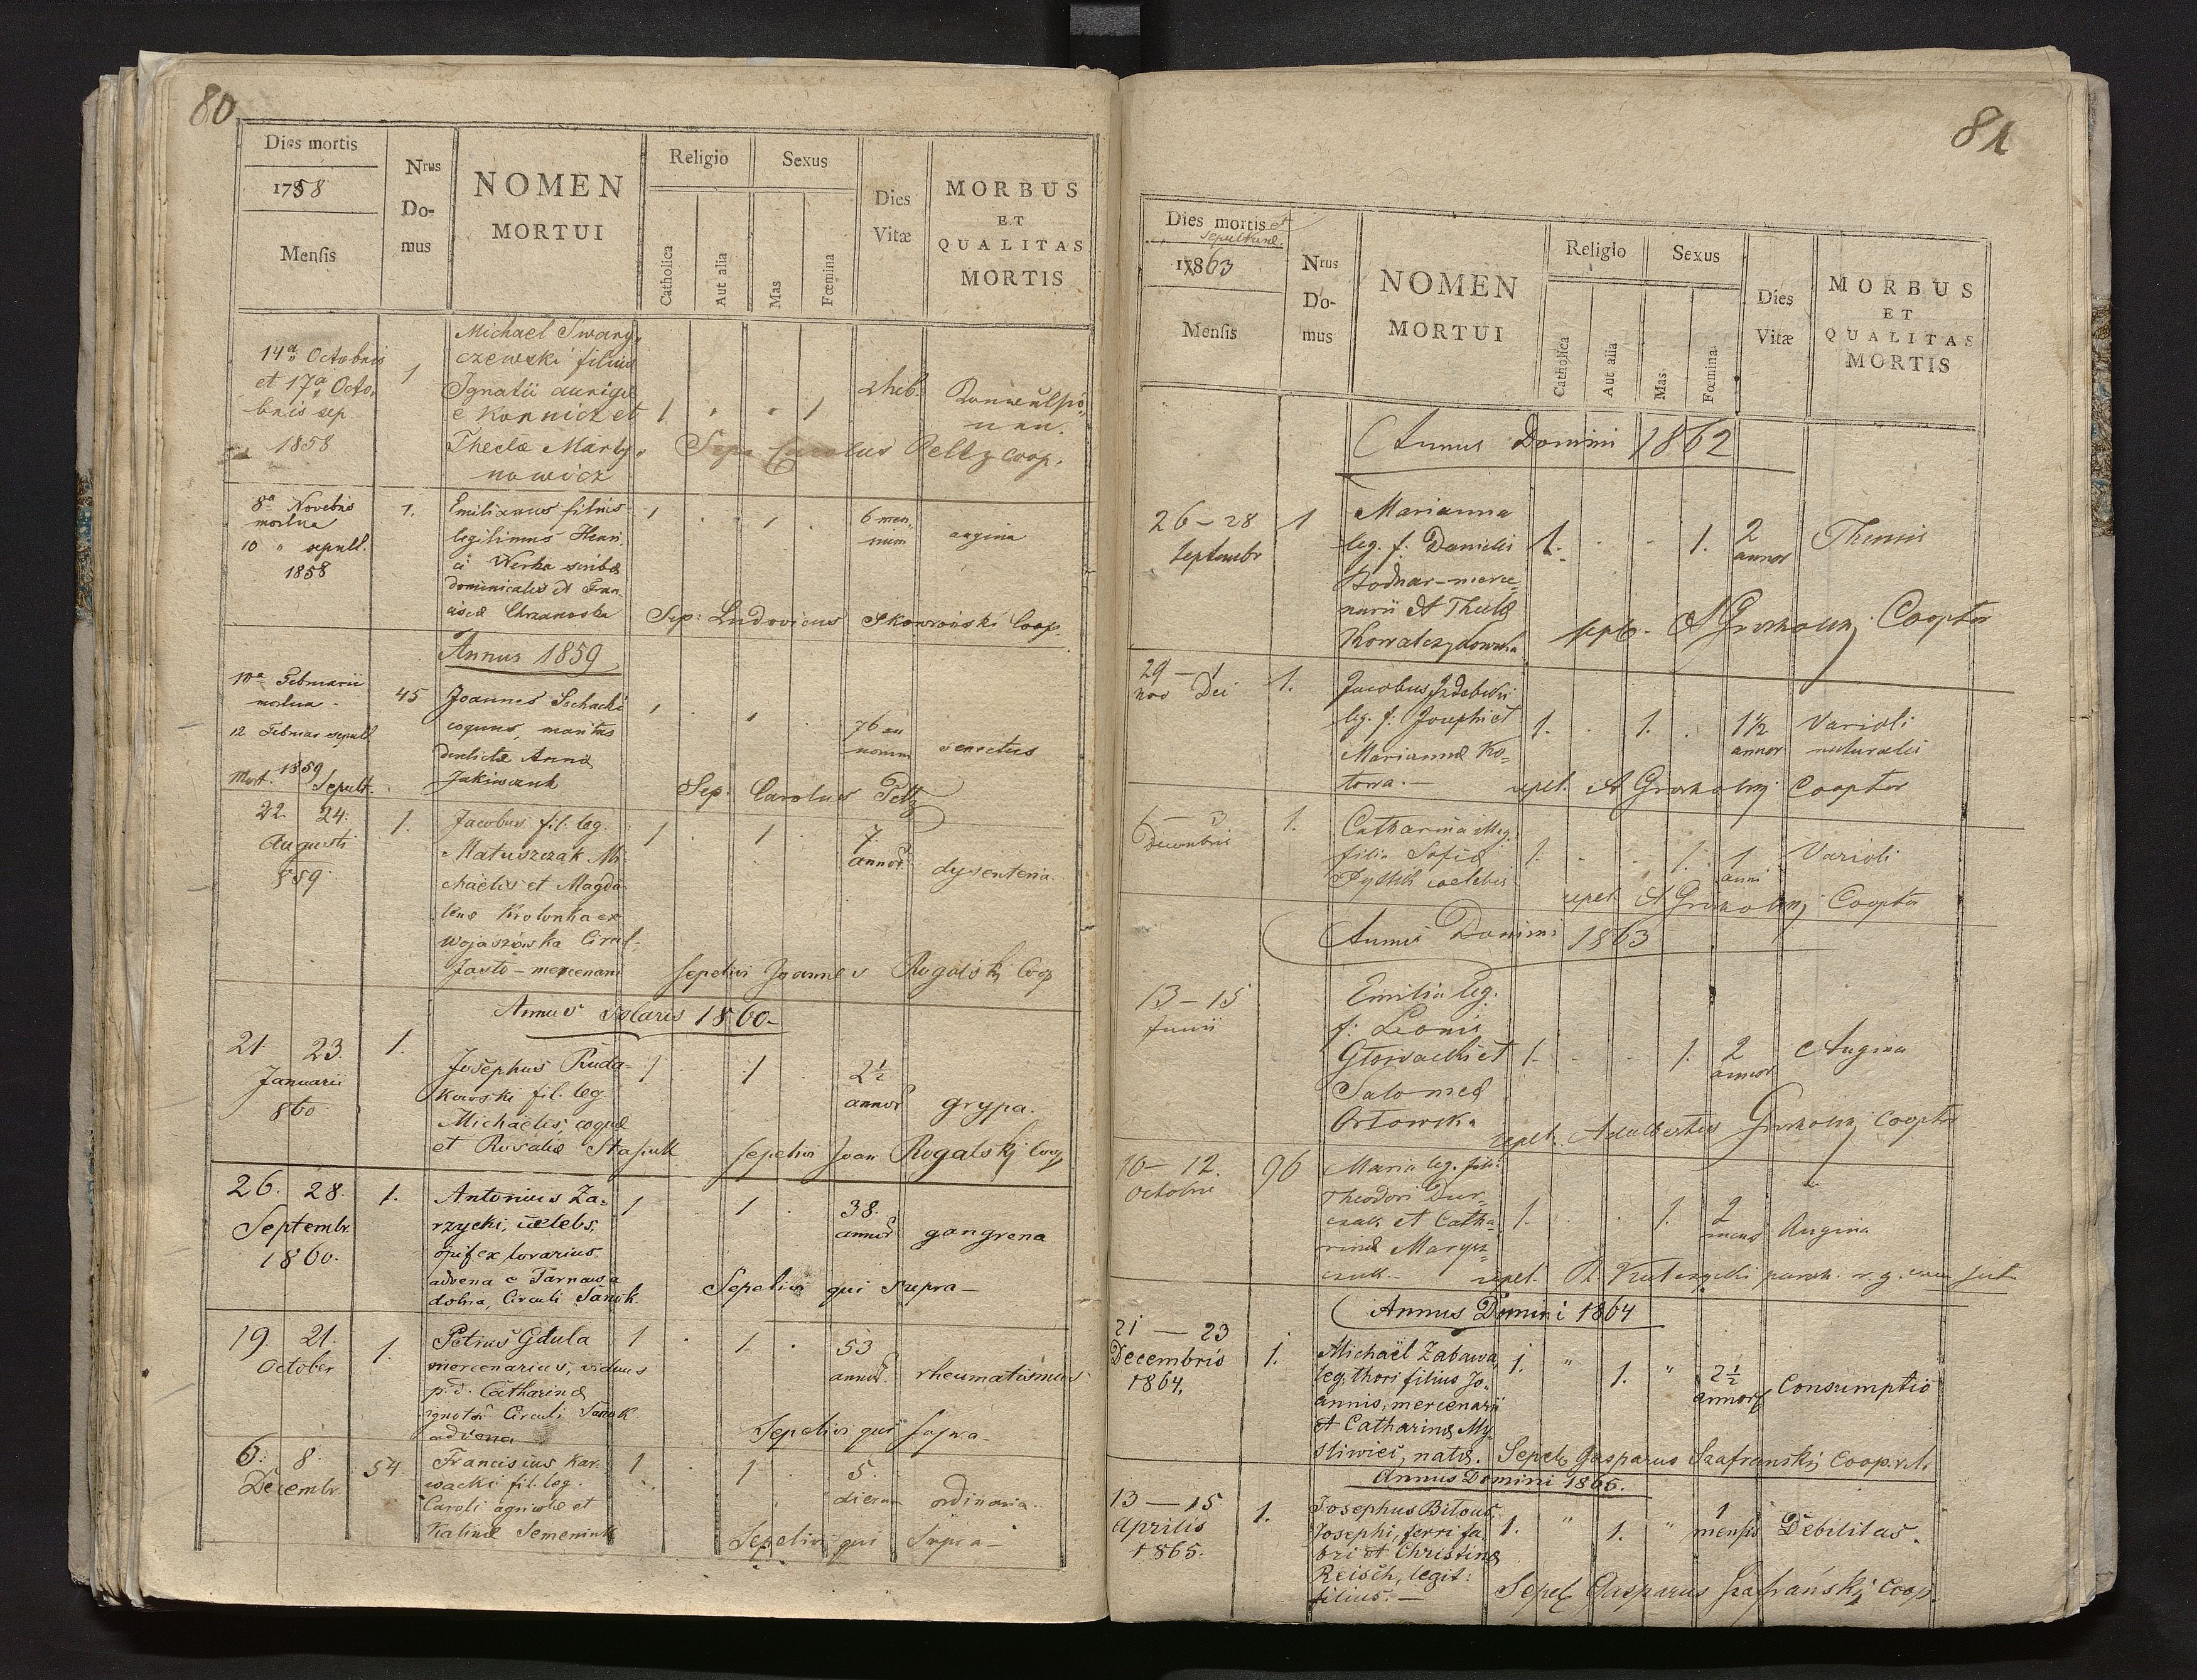 80
Dies mortis
1758
Mensis
Nrus Domus
NOMEN MORTUI
Religio
Catholica
Aut alia
Sexus
Mas
Fœmina
Dies Vitæ
MORBUS ET QUALITAS MORTIS
14a Octobris
et 17a Octo,
bris sep.
1858
1
Michael
czewski filius
Ignatii aurigæ
e Kornicz et
Theclæ Marty,
nowicz
1 " " 1
2 heb.
Sep. Carolus Peltz coop.
8a Novebris
mortua
10 " sepult.
1858
1.
Emilianus filius
legitimus Henri,
ci Werha scribæ
dominicalis et Fran,
ciscæ Chrzanoska
1 . 1 .
6 men,
sium
angina
Sep: Ludovicus Skowroński Coop.
Annus 1859
10a Februarii
mortua -
12 Februar sepult
1859
45
Joannes Sochacki
coquus, maritus
derelictæ Annæ
Jakimczuk
1 . 1 .
76 an
norum
senectus
Sep: Carolus Peltz
Mort. Sepult.
22. 24.
Augusti
859.
1.
Jacobus fil. leg.
Matuszczak Mi-
chaelis et Magda-
lenæ Krolonka ex
Wojaszówka Circul-
Jasło - mercenarii
1 . 1
7.
annor
dysenteria.
sepelivi Joannes Rogalskj Coop
Annus Solaris 1860.-
21. 23.
Januarii
860.
1.
Josephus Ruda-
kowski fil. leg
Michaelis, coquæ
et Rosaliæ Stasiuk
1 . 1 .
2½
annor
grypa.
sepelivi Joan Rogalskj Coop
26. 28.
Septembr.
1860.
1.
Antonius Za-
rzycki, cælebs,
opifex lorarius
advena e Tarnawa
dolna, Circuli Sanok.
1 . 1 .
38.
annor
gangrena
Sepelivi qui supra -
19. 21.
October
1.
Petrus Gdula
mercenarius, viduus
p. d. Catharinæ
ignotæ Circuli Sanok
advena
1 . 1 .
53
annor
rheumatismus
Sepelivi qui supra -
6. 8.
Decembr.
54.
Franciscus Kar-
wacki fil. leg.
Caroli agricolæ et
Kalinæ Semeniuk
1 . 1 .
5.
dierum
ordinaria.
Sepelivi qui supra -
81
Dies mortis et
sepulturæ.
17863
Mensis
Nrus Domus
NOMEN MORTUI
Religio
Catholica
Aut alia
Sexus
Mas
Fœmina
Dies Vitæ
MORBUS ET QUALITAS MORTIS
Annus Domini 1862
26 - 28
Septembr
1
Marianna
leg. f: Danielis
Bodnar - merce-
narii et Theclæ
Kowalczykowska
1. . . 1.
2
annor
sepel. A Coopter
29 - 1
nov Dec
1.
Jacobus Izdebski
leg. f: Josephi et
Mariannæ Ko-
towa. -
1. . 1. .
1½
annor
Varioli
naturales
sepel. A Cooptor
3
Decembris
1.
Catharina illeg.
filia Sofiæ
cælebis
1. . . 1.
1
anni
Varioli
sepel. A Cooptor
Annus Domini 1863
13 - 15
Junii
Emilia leg.
f: Leonis
Głowacki et
Salomeæ
Orłowska
1. . . 1.
2
annor
Angina
sepel. Adalbertus Cooptor
10 - 12.
Octobris
96
Maria leg. filia
Theodori Dur-
czak et Catha-
rinæ
czuk -
1. . . 1.
2
mens
Angina
sepel. paroch. r. g.
Annus Domini 1864
21 - 23
Decembris
1864.
1.
Michaël Zabawa,
leg. thori filius Jo,
annis, mercenarii
et Catharinæ My,
sliwiec, natæ.
1. " 1. "
2½
annor
Consumptio
Sepel. Gasparus Szafranskj Coop. r. l.
Annus Domini 1865.
13 - 15
Aprilis
1865.
1.
Josephus Bilous,
Josephi, ferri fa,
bri et Christinæ
Reisch, legit:
filius. -
1. " 1. "
1
mensis
Debilitas.
Sepel. Gasparus Szafrańskj Coop.